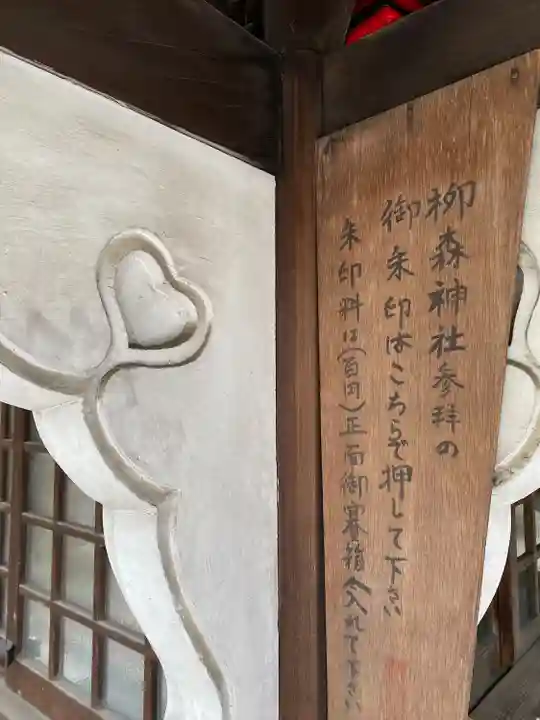 柳森神社参拝の
御朱印はこちらで押して下さい
朱印料は(百円)正面御賽箱へ入れて下さい